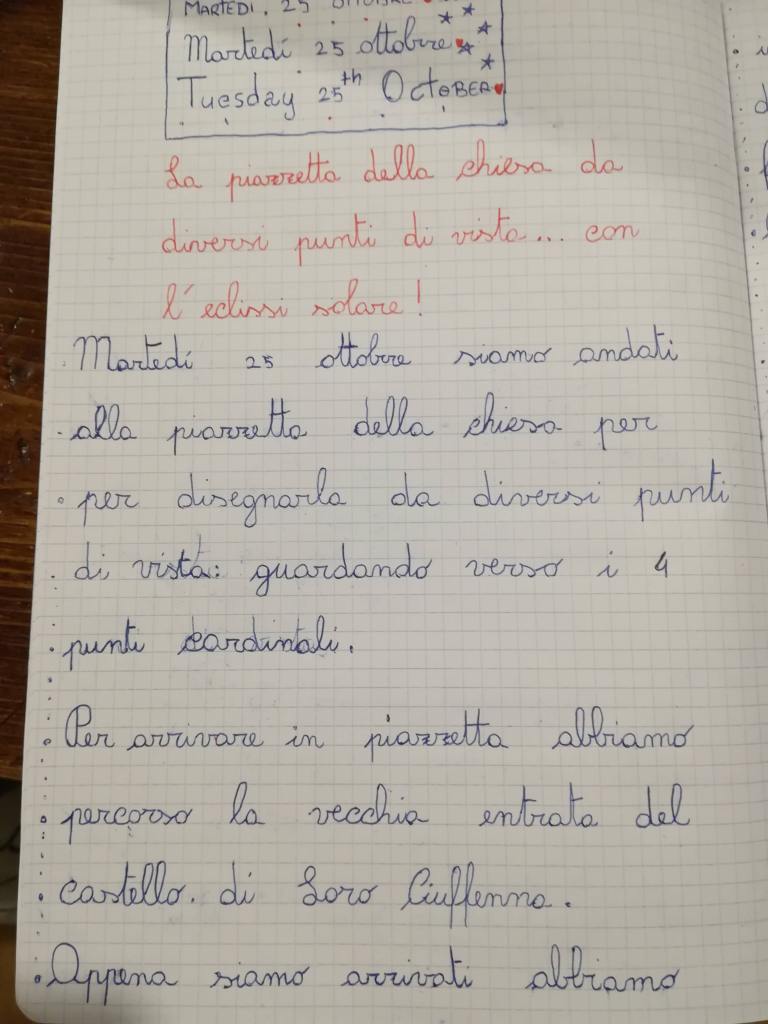 MARTEDÌ, 25 OTTOBRE
Martedí 25 ottobre
Tuesday 25th OCTOBER
La piazzetta della chiesa da
diversi punti di vista... con
l'eclissi solare!
Martedí 25 ottobre siamo andati
alla piazzetta della chiesa per
per disegnarla da diversi punti
di vista: guardando verso i 4
punti cardinali.
Per arrivare in piazzetta abbiamo
percorso la vecchia entrata del
castello. di Loro Ciuffenna.
Appena siamo arrivati abbiamo